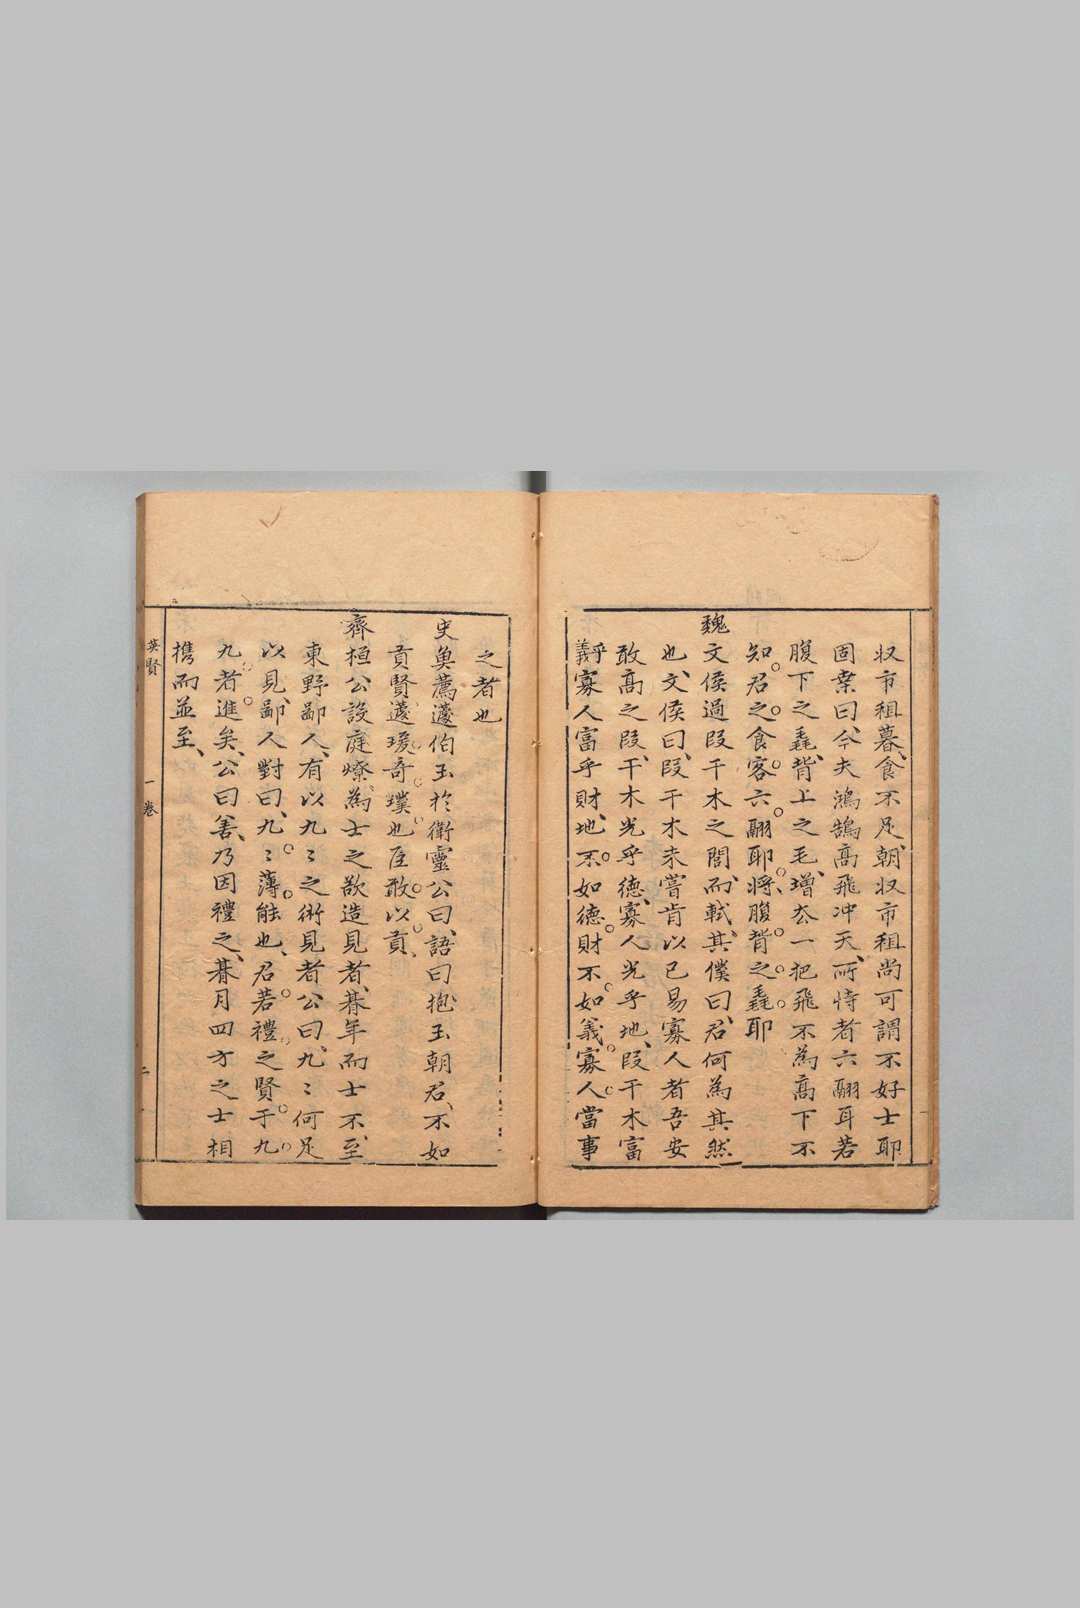 収市租暮食不足、朝収市租尚可謂不好士耶
固桒曰、今夫鴻鵠高飛冲天、所恃者六翮耳若
腹下之毳、背上之毛、增厺一把飛不為高下不
知。君之食客六翮耶、將腹背之毳耶
魏文侯過段干木之閭、而軾、其僕曰、君何為其然
也、文侯曰、段干木未嘗肯以已易寡人者吾安
敢高之段、干木光乎德、寡人光乎地、段干木富
乎義寡人富乎財、地不如德、財不如義、寡人當事
之者也
史奐薦蘧伯玉於衛靈公曰、語曰抱玉朝君、不如
貢賢蘧瑗奇璞也臣敢以貢、
齊桓公設庭燎為士之欲造見者、朞年而士不至
東野鄙人、有以九〻之術見者公曰、九〻何足
以見、鄙人對曰、九〻薄能也、君若禮之賢于九
九者進矣、公曰善、乃因禮之、朞月四方之士相
携而並至、
英賢
一卷
二